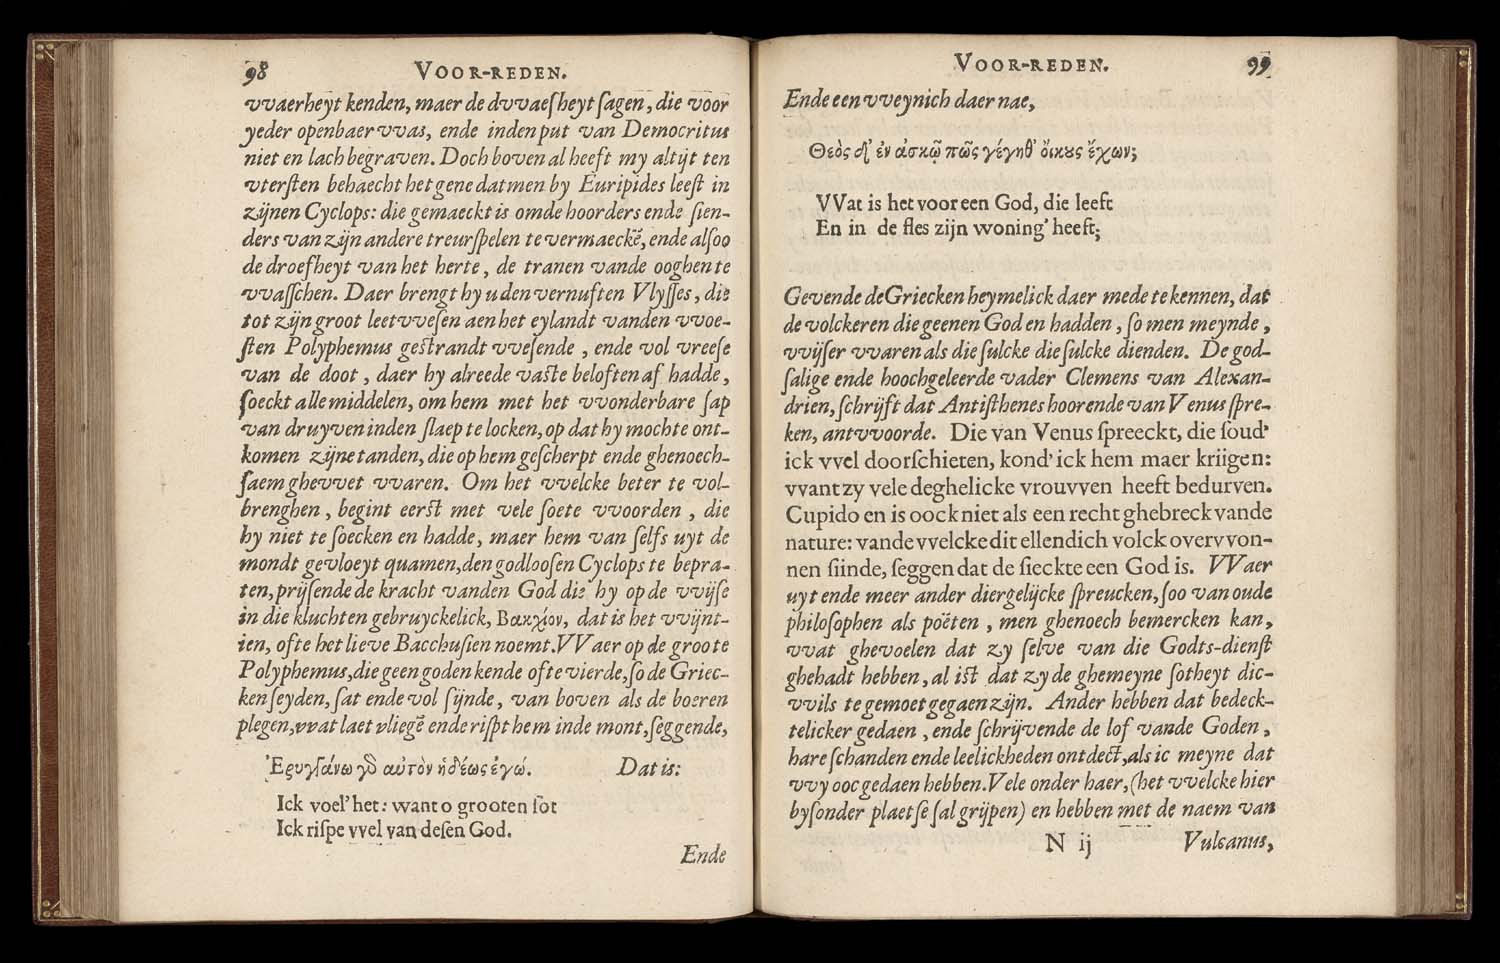 98 VOOR-REDEN.
vvaerheyt kenden, maer de dvvaesheyt sagen, die voor
yeder openbaer vvas, ende inden put van Democritus
niet en lach begraven. Doch boven al heeft my altijt ten
vtersten behaecht het gene datmen by Euripides leest in
zijnen Cyclops: die gemaeckt is om de hoorders ende sien-
ders van zijn andere treurspelen te vermaeckē, ende alsoo
de droefheyt van het herte, de tranen vande ooghen te
vvasschen. Daer brengt hy u den vernuften Vlysses, die
tot zijn groot leetvvesen aen het eylandt vanden vvoe-
sten Polyphemus gestrandt vvesende, ende vol vreese
van de doot, daer hy alreede vaste beloften af hadde,
soeckt alle middelen, om hem met het vvonderbare sap
van druyven inden slaep te locken, op dat hy mochte ont-
komen zijne tanden, die op hem gescherpt ende ghenoech-
saem ghevvet vvaren. Om het vvelcke beter te vol-
brenghen, begint eerst met vele soete vvoorden, die
hy niet te soecken en hadde, maer hem van selfs uyt de
mondt gevloeyt quamen, den godloosen Cyclops te bepra-
ten, prijsende de kracht vanden God die hy op de vvijse
in die kluchten gebruyckelick, Βακχίον, dat is het vvijnt-
ien, ofte het lieve Bacchusien noemt. VVaer op de groote
Polyphemus, die geen goden kende ofte vierde, so de Griec-
ken seyden, sat ende vol sijnde, van boven als de boeren
plegen, vvat laet vliegē ende rispt hem inde mont, seggende,
Ἐρυγγάνω γὸ αὐτὸν ἡδέως ἐγώ. Dat is:
Ick voel' het: want o grooten sot
Ick rispe vvel van desen God.
Ende
VOOR-REDEN. 99
Ende een vveynich daer nae,
Θεὸς δ' ἐν ἀσκῷ πῶς γέγηθ' ὄικους ἔχων;
VVat is het voor een God, die leeft
En in de fles zijn woning' heeft;
Gevende de Griecken heymelick daer mede te kennen, dat
de volckeren die geenen God en hadden, so men meynde,
vvijser vvaren als die sulcke die sulcke dienden. De god-
salige ende hoochgeleerde vader Clemens van Alexan-
drien, schrijft dat Antisthenes hoorende van Venus spre-
ken, antvvoorde. Die van Venus spreeckt, die soud'
ick vvel doorschieten, kond' ick hem maer kriigen:
vvant zy vele deghelicke vrouvven heeft bedurven.
Cupido en is oock niet als een recht ghebreck vande
nature: vande vvelcke dit ellendich volck overvvon-
nen siinde, seggen dat de sieckte een God is. VVaer
uyt ende meer ander diergelijcke spreucken, soo van oude
philosophen als poëten, men ghenoech bemercken kan,
vvat ghevoelen dat zy selve van die Godts-dienst
ghehadt hebben, al ist dat zy de ghemeyne sotheyt dic-
vvils te gemoet gegaen zijn. Ander hebben dat bedeck-
telicker gedaen, ende schrijvende de lof vande Goden,
hare schanden ende leelickheden ontdect, als ic meyne dat
vvy ooc gedaen hebben. Vele onder haer, (het vvelcke hier
bysonder plaetse sal grijpen) en hebben met de naem van
N ij Vulcanus,